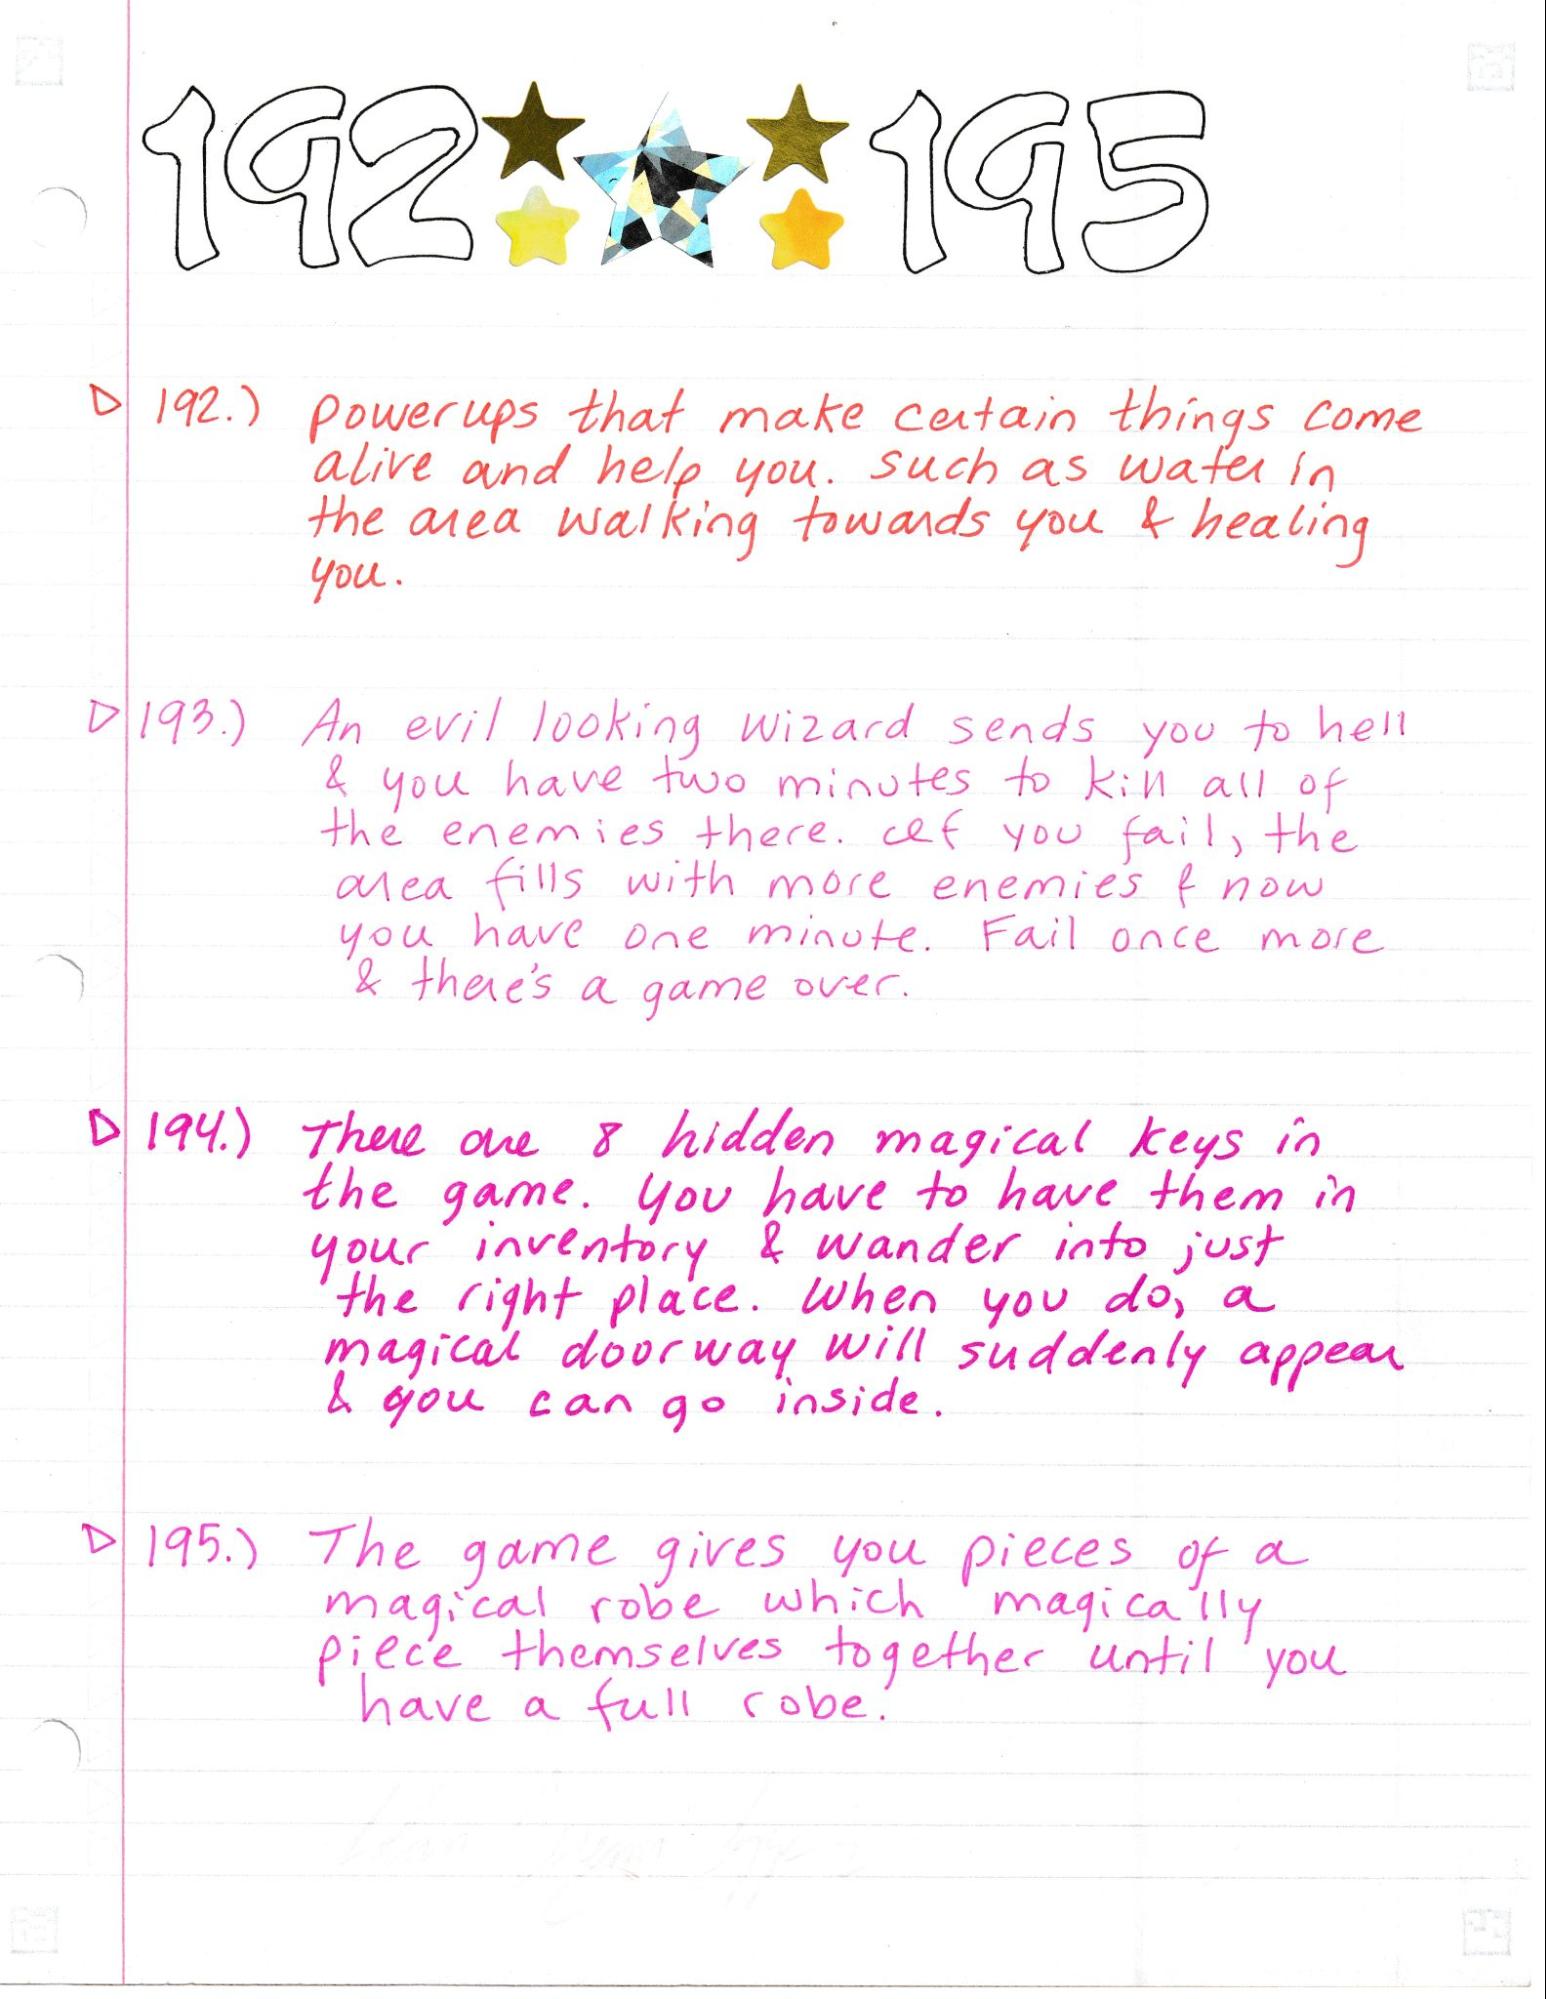 192 195
192.) powerups that make certain things come
alive and help you. such as water in
the area walking towards you & healing
you.
193.) An evil looking wizard sends you to hell
& you have two minutes to kill all of
the enemies there. If you fail, the
area fills with more enemies & now
you have one minute. Fail once more
& there's a game over.
194.) There are 8 hidden magical keys in
the game. You have to have them in
your inventory & wander into just
the right place. When you do, a
magical doorway will suddenly appear
& you can go inside.
195.) The game gives you pieces of a
magical robe which magically
piece themselves together until you
have a full robe.